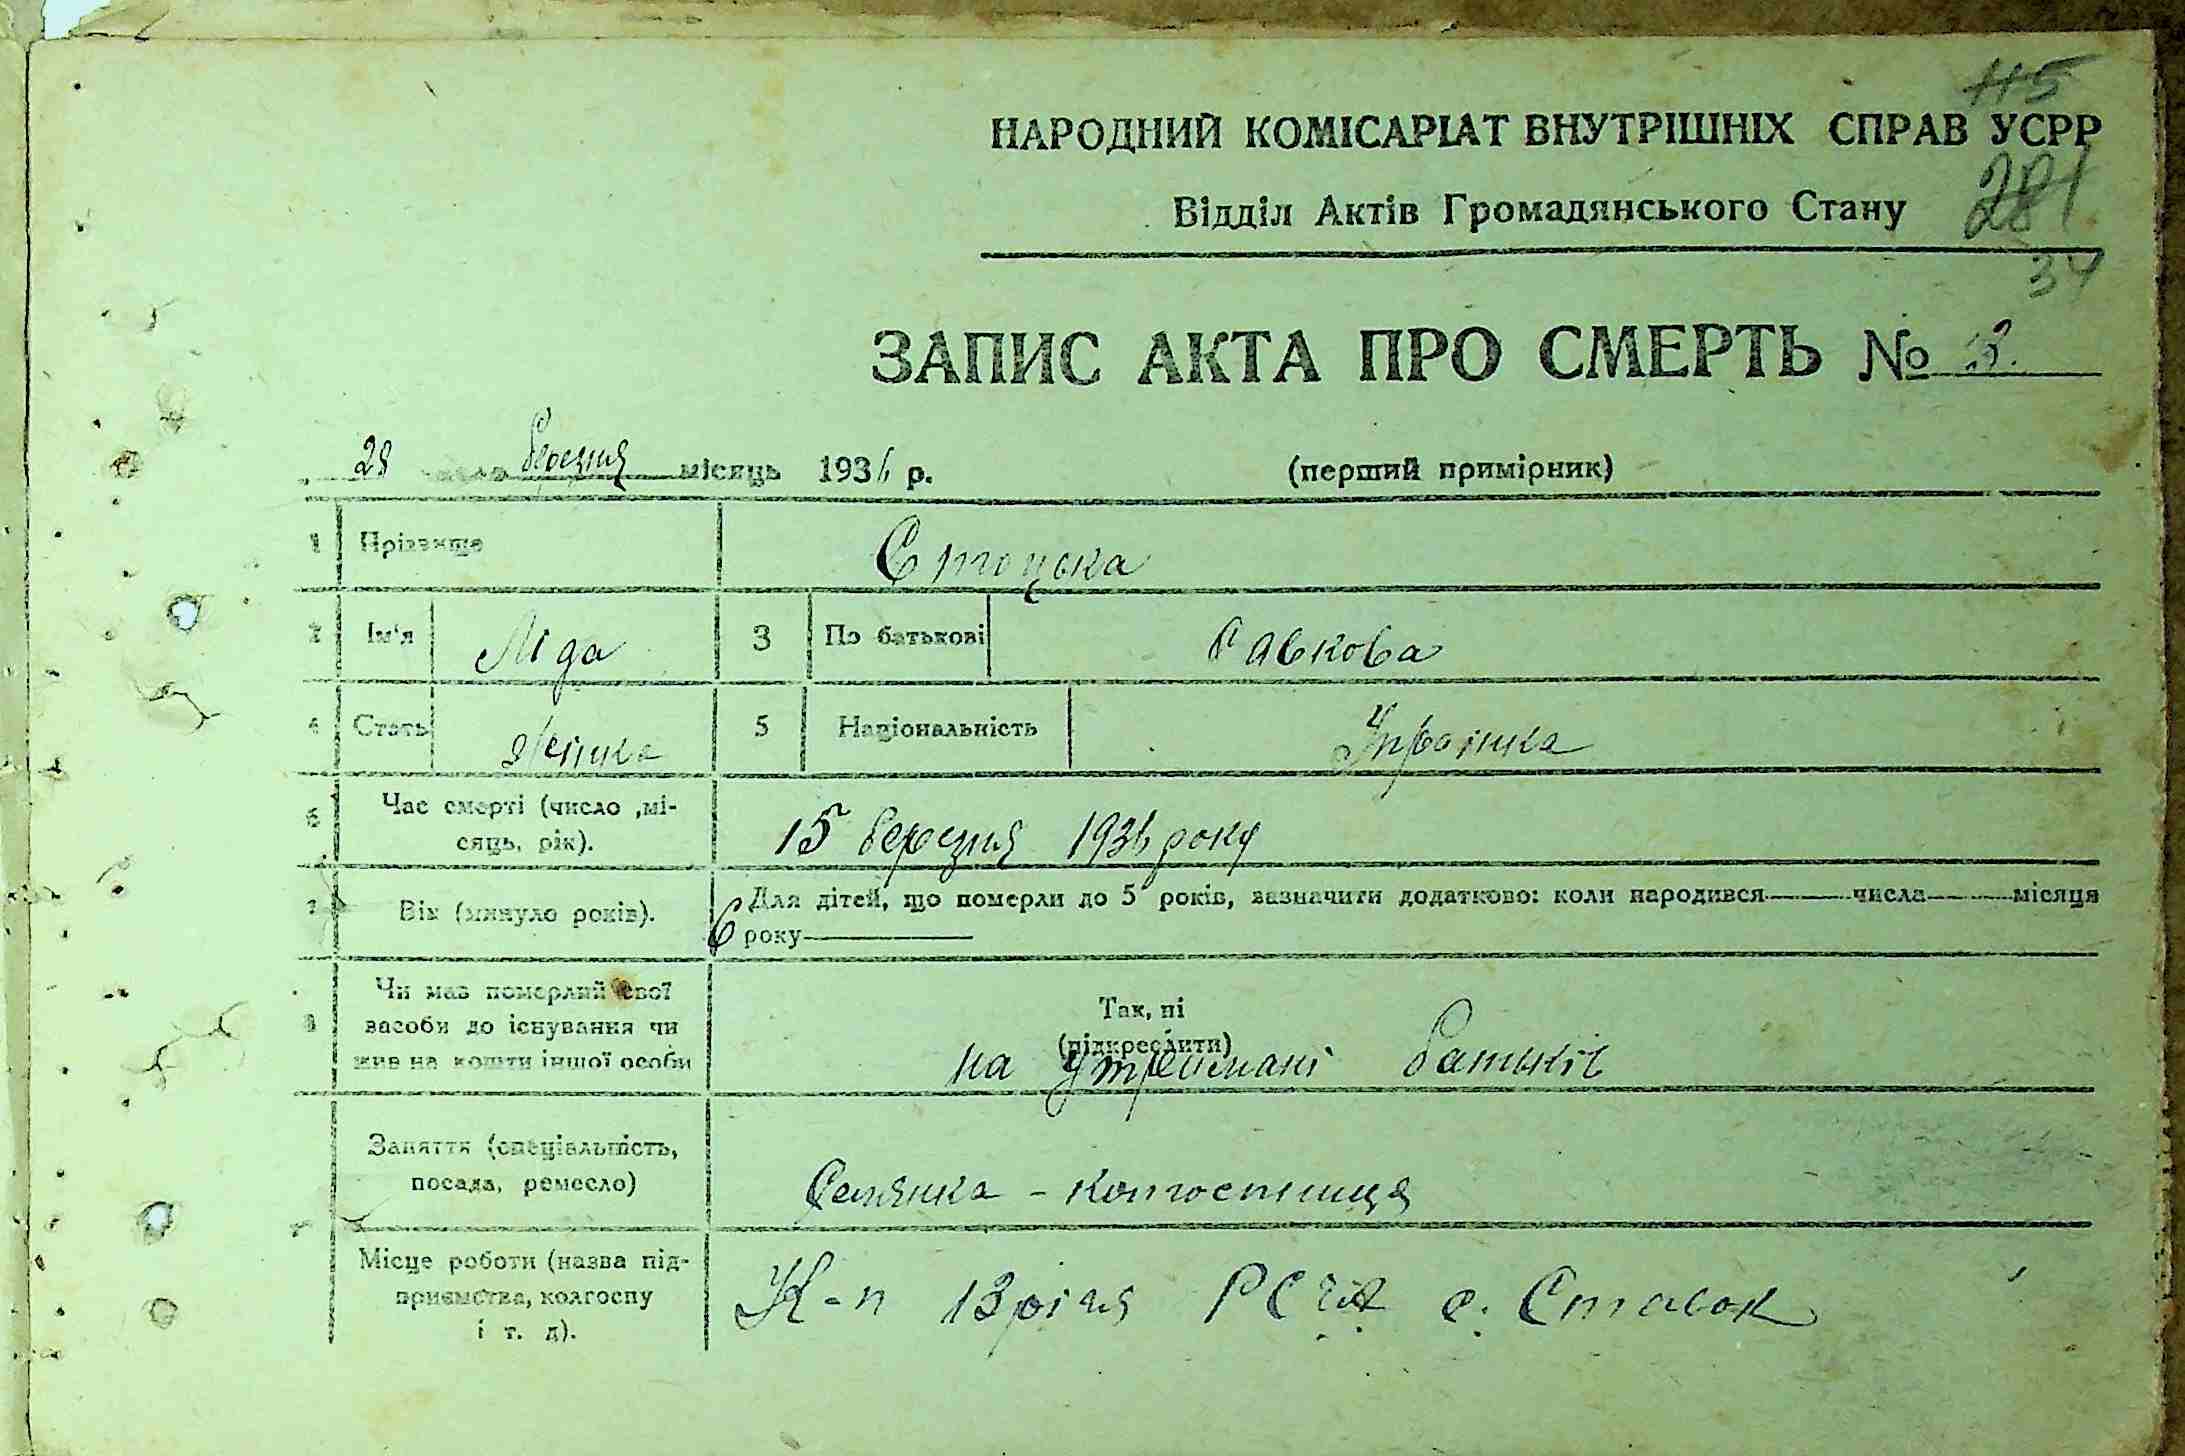 115
НАРОДНИЙ КОМІСАРІАТ ВНУТРІШНІХ СПРАВ УСРР
Відділ Актів Громадянського Стану
281
34
ЗАПИС АКТА ПРО СМЕРТЬ №
28 числа березня місяць 1936 р. (перший примірник)
1 Прізвище Стоцька
2 Ім'я Ліда 3 По батькові Савкова
4 Стать жінка 5 Національність Українка
6 Час смерті (число ,мі-
сяць, рік). 15 березня 1936 року
7 Вік (минуло років). 6 Для дітей, що померли до 5 років, зазначити додатково: коли народився числа місяця
року
8 Чи мав померлий свої
засоби до існування чи
жив на кошти іншої особи
Так, ні
(підкреслити)
на утримані батьків
Заняття (спеціальність,
посада, ремесло) Селянка - колгоспниця
Місце роботи (назва під-
приємства, колгоспу
і т. д).
К-п 13річя РСЧА с. Ставок